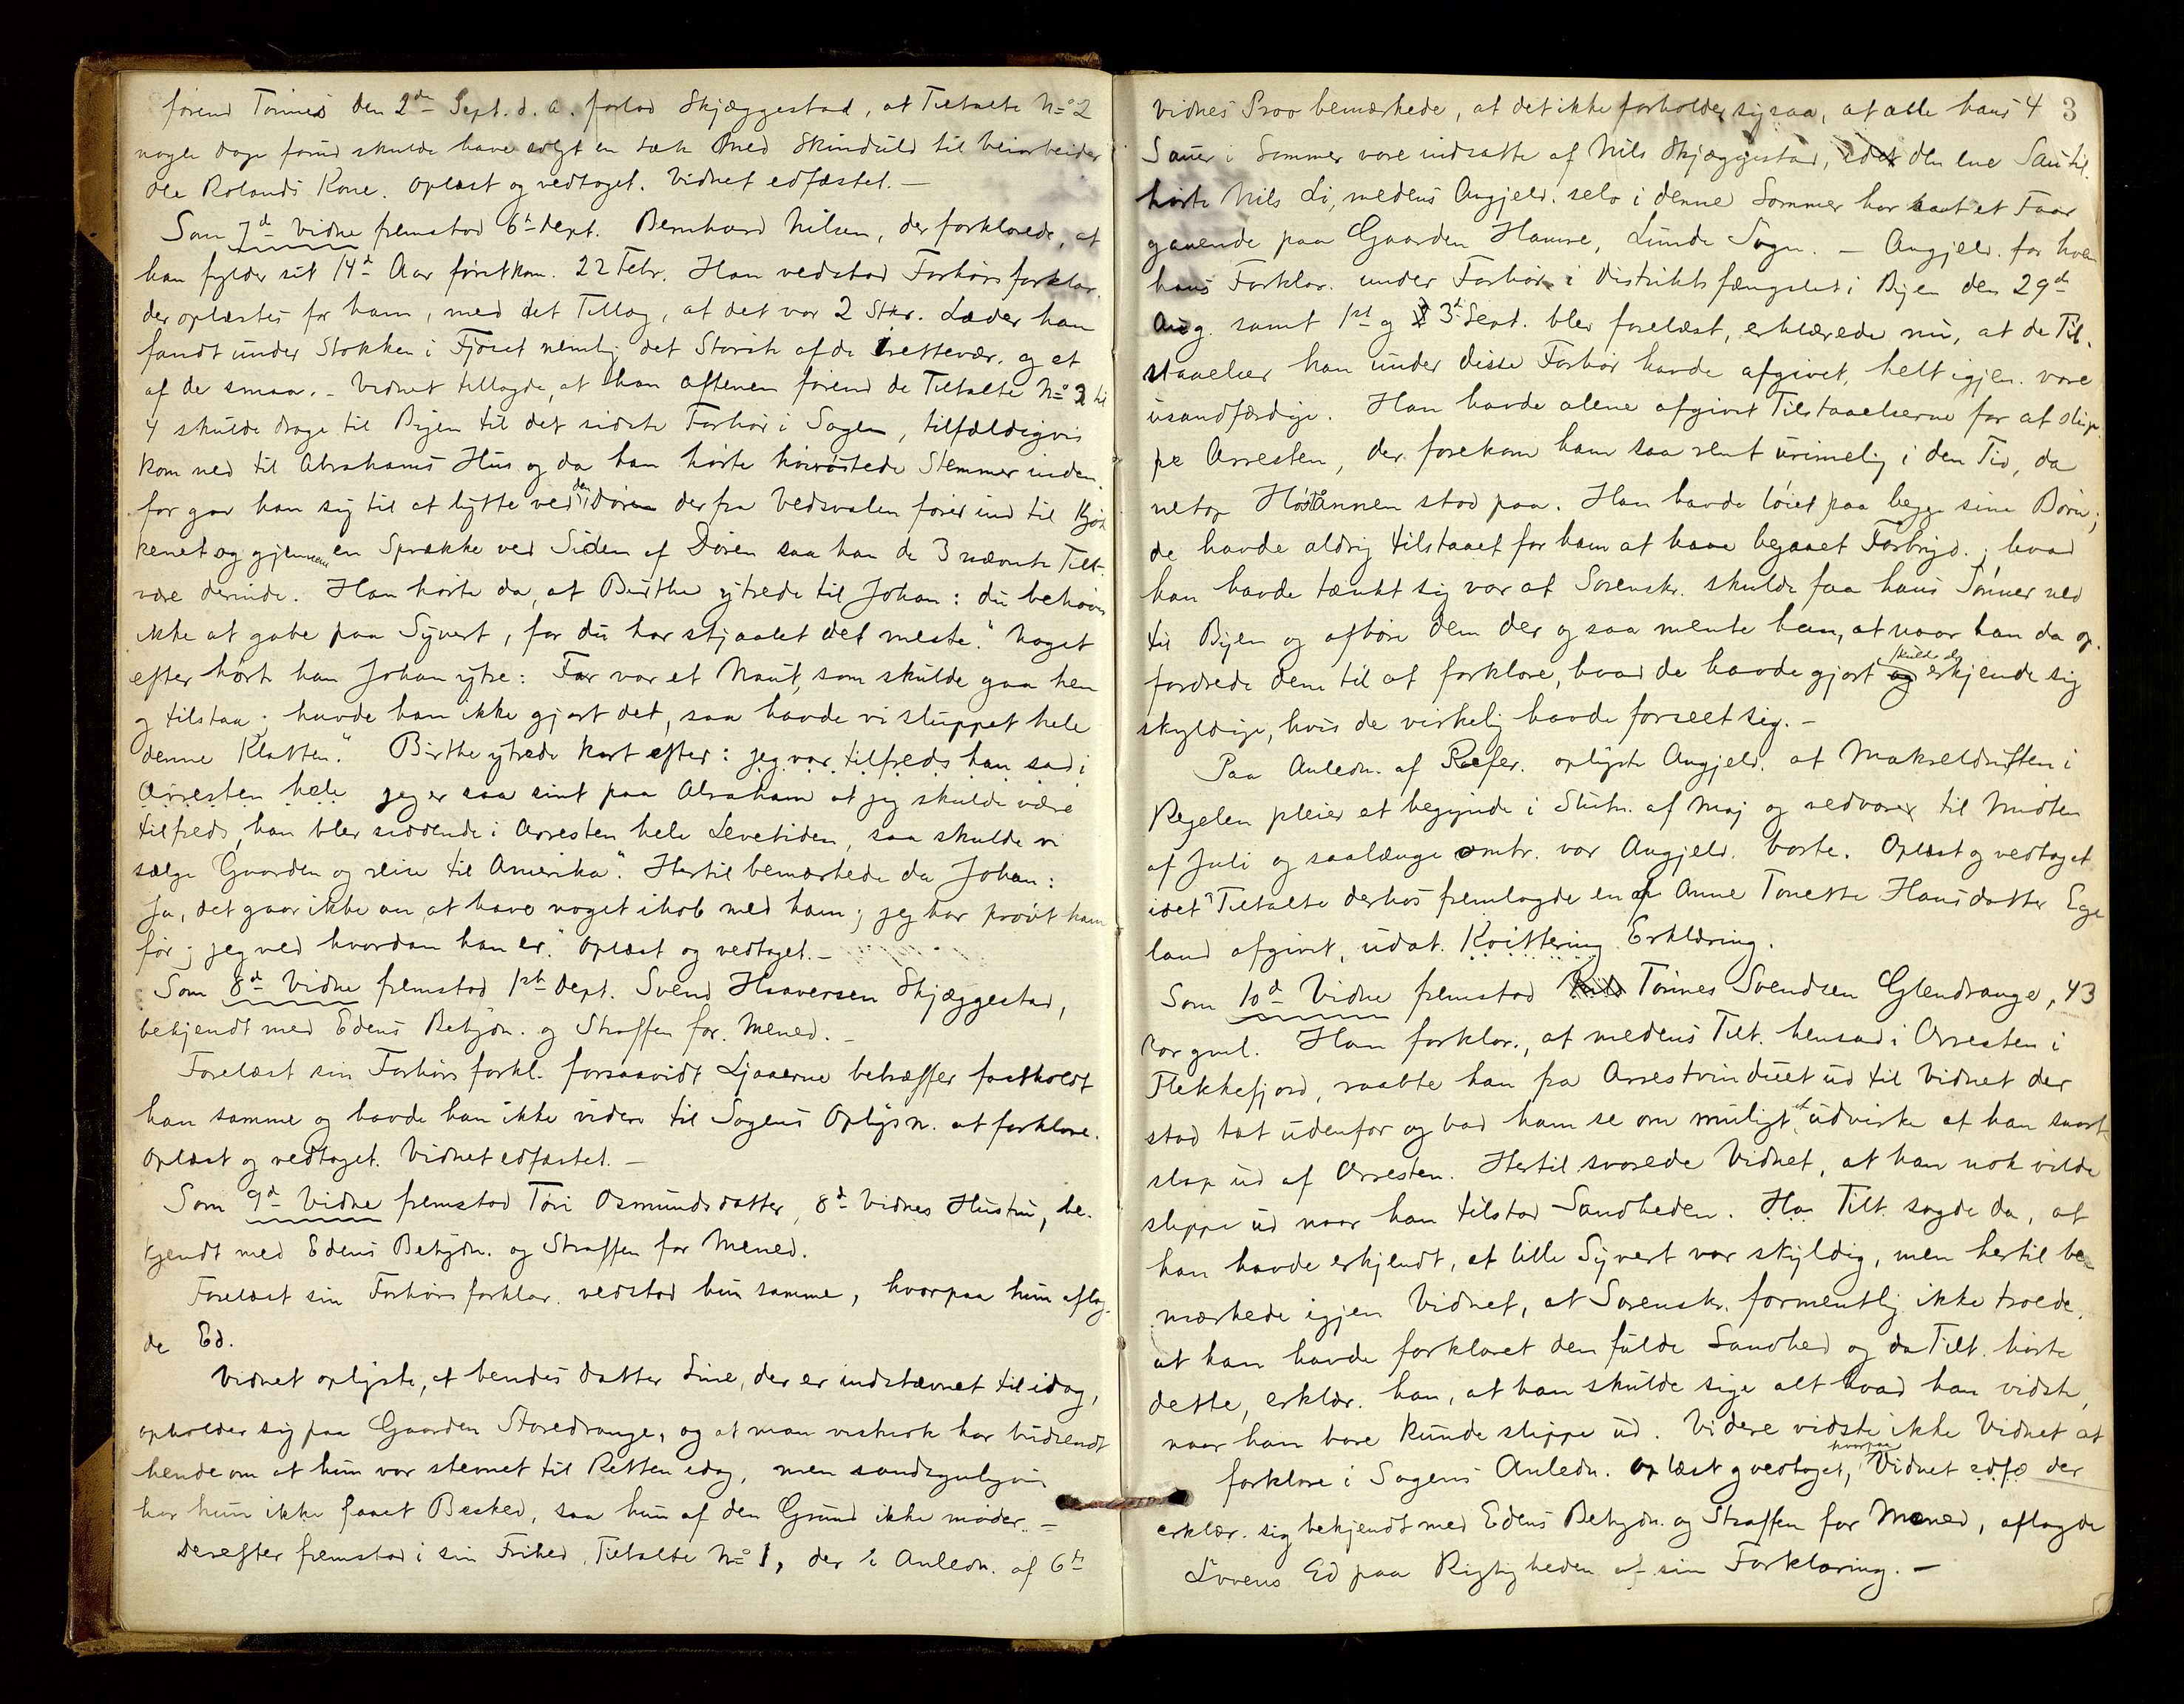 førend Tønnes den 2den Sept. d. a. forlod Skjæggestad, at Tiltalte No 2
nogle dage forud skulde have solgt en Sæk med Skinduld til beiarbeider
Ole Rolands Kone. Oplæst og vedtaget. Vidnet edfæstet. —
Som 7de Vidne fremstod 6te Dept. Bernhard Nilsen, der forklarede, at
han fylder sit 14de Aar førstkom. 22 Febr. Han vedstod Forhørsforklar.
der oplæstes for ham, med det Tillæg, at det var 2 Stkr. Læder han
fandt under Stokken i Fjøset nemlig det Største af de irettevær. og et
af de smaa. - Vidnet tillagde, at han aftenen førend de Tiltalte No 2 til
4 skulde drage til Byen til det sidste Forhør i Sagen, tilfældigvis
kom ned til Abrahams Hus og da han hørte høirøstede Stemmer inden-
for gav han sig til at lytte ved den Døren der fra Vedsvalen fører ind til Kjøk
kenet og gjennem en Sprække ved Siden af Døren saa han de 3 nævnte Tilt.
være derinde. Han hørte da, at Birthe ytrede til Johan: du behøver
ikke at gabe paa Syvert, for du har stjaalet det meste." Noget
efter hørte han Johan ytre: Far var et Naut, som skulde gaa hen
og tilstaa; havde han ikke gjort det, saa havde vi sluppet hele
denne Klatten." Birthe ytrede kort efter: jeg var tilfreds han sad i
Arresten hele jeg er saa sint paa Abraham at jeg skulde være
tilfreds, han blev siddende i Arresten hele Levetiden, saa skulde vi
sælge Gaarden og reise til Amerika". Hertil bemærkede da Johan:
Ja, det gaar ikke an, at have noget ihob med ham; jeg har prøvt ham
før; jeg ved hvordan han er." Oplæst og vedtaget. -
Som 8de Vidne fremstod 1ste Dept. Svend Haaversen Skjæggestad,
bekjendt med Edens Betydn. og Straffen for Mened. -
Forelæst sin Forhørsforkl. forsaavidt Ljaaerne betræffer fastholdt
han samme og havde han ikke videre til Sagens Oplysn. at forklare.
Oplæst og vedtaget. Vidnet edfæstet. —
Som 9de Vidne fremstod Tøri Osmundsdatter, 8de Vidnes Hustru, be-
kjendt med Edens Betydn. og Straffen for Mened.
Forelæst sin Forhørsforklar. vedstod hun samme, hvorpaa hun aflag-
de Ed.
Vidnet oplyste, at hendes datter Sine, der er indstævnet til idag,
opholder sig paa Gaarden Storedrange, og at man vistnok har budsendt
hende om at hun var stevnet til Retten idag, men sandsynligvis
har hun ikke faaet Besked, saa hun af den Grund ikke møder. —
Derefter fremstod i sin Frihed, Tiltalte No 1, der i Anledn. af 6te
3
Vidnes Prov bemærkede, at det ikke forholder sig saa, at alle hans 4
Sauer i Sommer vare indsatte af Nils Skjæggestad, idet den ene Sau til-
hørte Nils Li, medens Angjeld. selv i denne Sommer har havt et Faar
gaaende paa Gaarden Hamre, Lunde Sogn. — Angjeld. for hvem
hans Forklar. under Forhør i Distriktsfængslet i Byen den 29de
Aug. samt 1st og 3de Sept. blev forelæst, erklærede nu, at de Til-
staaelser han under disse Forhør havde afgivet, helt igjen. vare
usandfærdige. Han havde alene afgivet Tilstaaelserne for at slip-
pe Arresten, der forekom ham saa rent urimelig i den Tid, da
netop Høstannen stod paa. Han havde løiet paa begge sine Børn;
de havde aldrig tilstaaet for ham at have begaaet Forbryd.; hvad
han havde tænkt sig var at Sorenskr. skulde faa hans Sønner ned
til Byen og afhøre dem der og saa mente han, at naar han da op-
fordrede dem til at forklare, hvad de havde gjort skulde de erkjende sig
skyldige, hvis de virkelig havde forseet sig. -
Paa Anledn. af Defer. oplyste Angjeld. at Makreldriften i
Regelen pleier at begynde i Slutn. af Maj og vedvarer til Midten
af Juli og saalænge omtr. var Angjeld. borte. Oplæst og vedtaget
idet Tiltalte derhos fremlagde en af Anne Tonette Hansdatter Ege
land afgivet, udat. Kvittering Erklæring.
Som 10de Vidne fremstod Tønnes Svendsen Glendrange, 43
Aar gml. Han forklar., at medens Tilt. hensad i Arresten i
Flekkefjord, raabte han fra Arrestvinduet ud til Vidnet der
stod tæt udenfor og bad ham se om muligt at udvirke at han snart
slap ud af Arresten. Hertil svarede Vidnet, at han nok vilde
slippe ud naar han tilstod Sandheden. Ha Tilt. sagde da, at
han havde erkjendt, at lille Syvert var skyldig, men hertil be
mærkede igjen Vidnet, at Sorenskr. formentlig ikke troede,
at han havde forklaret den fulde Sandhed og da Tilt. hørte
dette, erklær. han, at han skulde sige alt hvad han vidste,
naar han bare kunde slippe ud. Videre vidste ikke Vidnet at
forklare i Sagens Anledn. Oplæst og vedtaget, hvorpaa Vidnet edfæ der
erklær. sig bekjendt med Edens Betydn. og Straffen for Mened, aflagde
Lovens Ed paa Rigtigheden af sin Forklaring. —